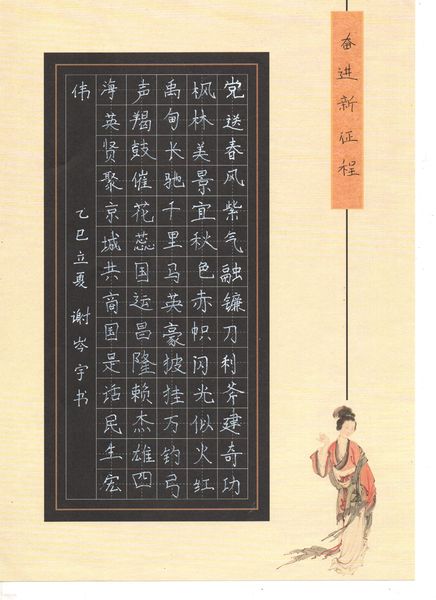 奋进新征程
党送春风紫气融镰刀利斧建奇功
枫林美景宜秋色赤帜闪光似火红
禹甸长驰千里马英豪披挂万钧弓
声羯鼓催花蕊国运昌隆赖杰雄四
海英贤聚京城共商国是话民生宏
伟
乙巳立夏 谢岑宇书